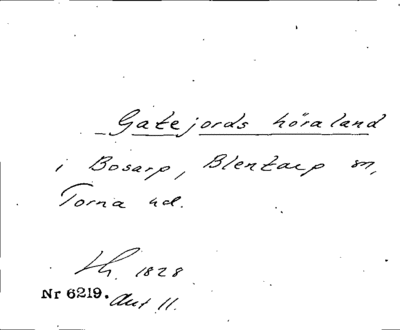 Gatejords höraland
i Bosarp, Blentarp sn,
Torna hd.
Lh. 1828
Nr 6219. Avt 11.